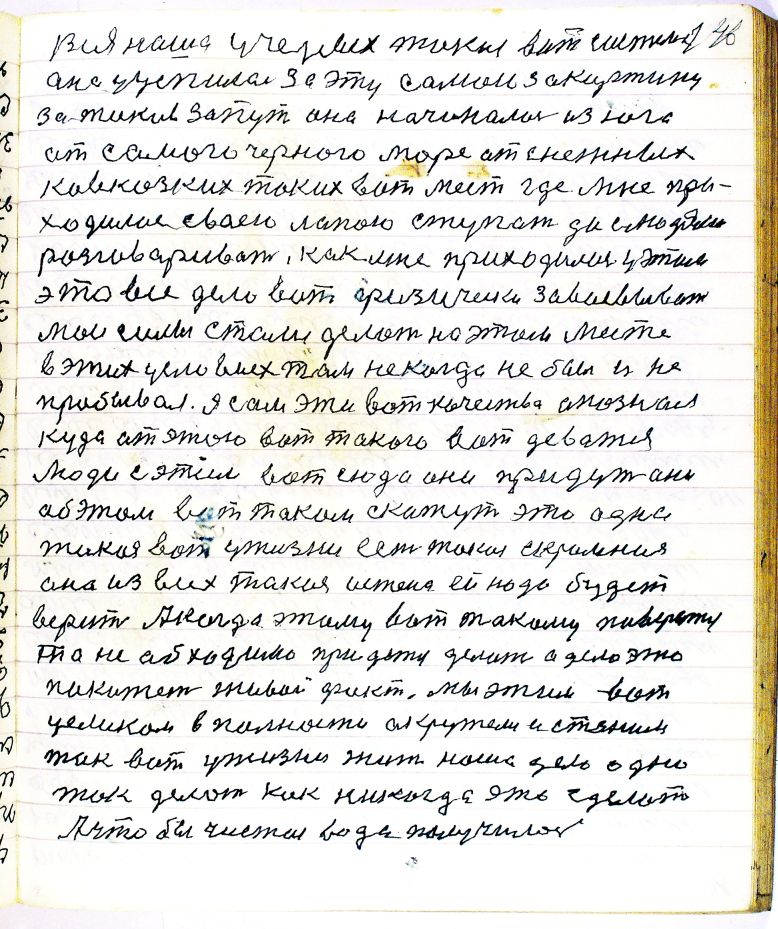 вся наша у чаловек такая вот система 46
ана уцепилас за эту самои закартину
за такив запут она началас из юга
от самого черного море от снежных
ковкозких таких вот мест где мне при-
ходилос своею лапою ступат да с людми
розговариват, как мне приходилос у этом
это все дело вот физически завоевыват
мои силы стали делат на этом месте
в этих условиех там некогда не был и не
пробывал. я сам эти вот качества опознал
куда от этого вот такого вот деватся
люди с этим вот сюда они придут ани
об этом вот таком скажут это одна
такая вот ужизни ест такая скромная
она из всех такая истена ей надо будет
верит А когда этому вот такому поверят
та не абходимо придется делат а дело это
покажет живой факт. мы этим вот
целиком в полности окружем и станим
так вот ужизни жит наша дело одно
так делат как никогда это сделат
А что бы чистая вода получилос